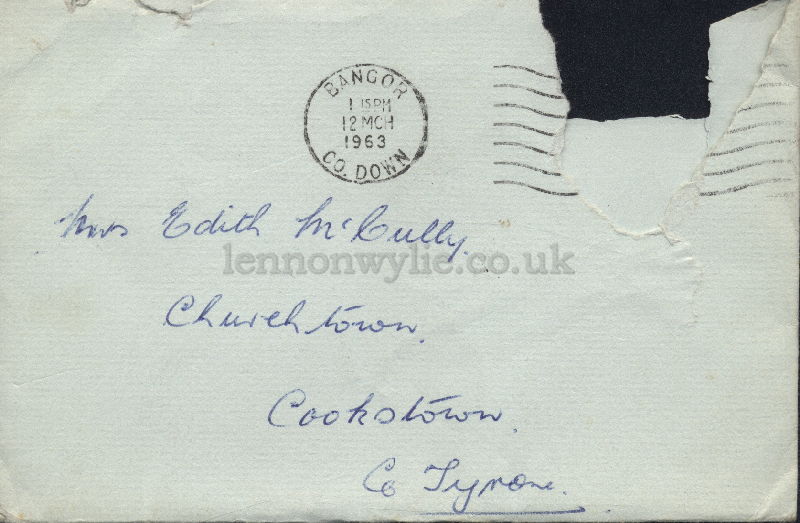 BANGOR
1 15PM
12 MCH
1963
CO. DOWN
Mrs Edith McCully.
lennonwylie.co.uk
Churchtown.
Cookstown.
Co Tyrone.